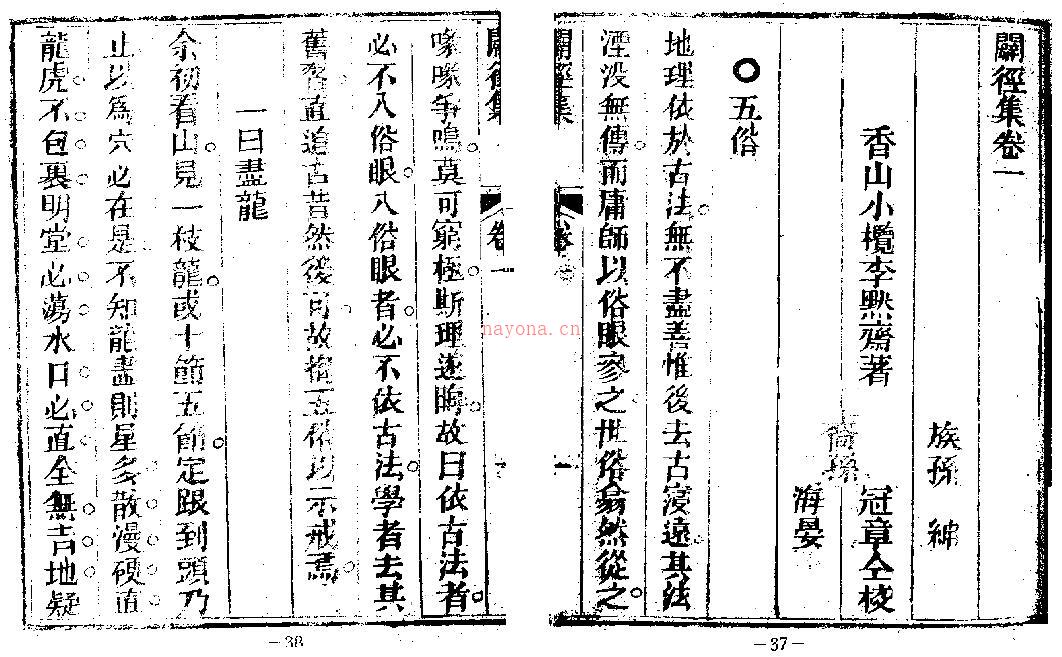 闢徑集卷一
香山小欖李默齋著
族孫 紳
裔孫 冠章仝校
海晏
五俗
地理依於古法無不盡善惟後去古寖遠其法
湮没無傳而庸師以俗眼參之世俗翕然從之
闢徑集 卷一
啄啄爭鳴莫可窮極斯理遂晦故曰依古法者
必不入俗眼入俗眼者必不依古法學者去其
舊染直追古昔然後可故摘五俗以示戒焉
一曰盡龍
余初看山見一枝龍或十節五節定跟到頭乃
止以為穴必在是不知龍盡則星多散漫硬直
龍虎不包裹明堂必蕩水口必直全無吉地疑
nayona.cn
—37—
—38